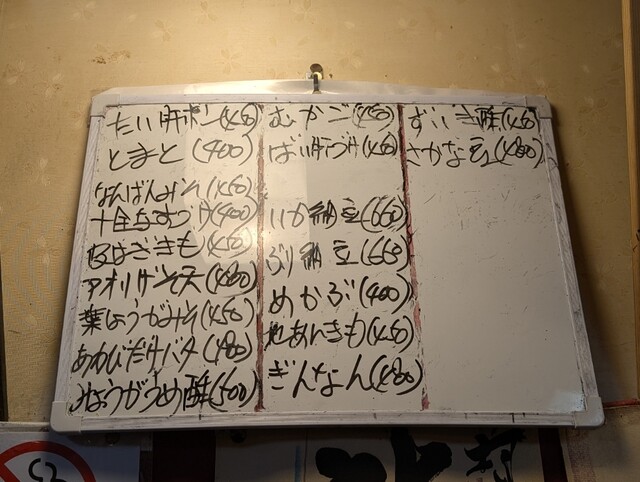 たい肝ポン(450)
とまと(400)
なんばんみそ(450)
十全なすづけ(400)
砂はざきも(450)
アオリゲソ天(480)
葉しょうがみそ(450)
あわびだけバタ(480)
みょうがうめ酢(500)
むかご(450)
ばい肝づけ(450)
いか納豆(660)
ぶり納豆(660)
めかぶ(400)
地あんきも(450)
ぎんなん(480)
ずいき酢(450)
さかな豆(480)